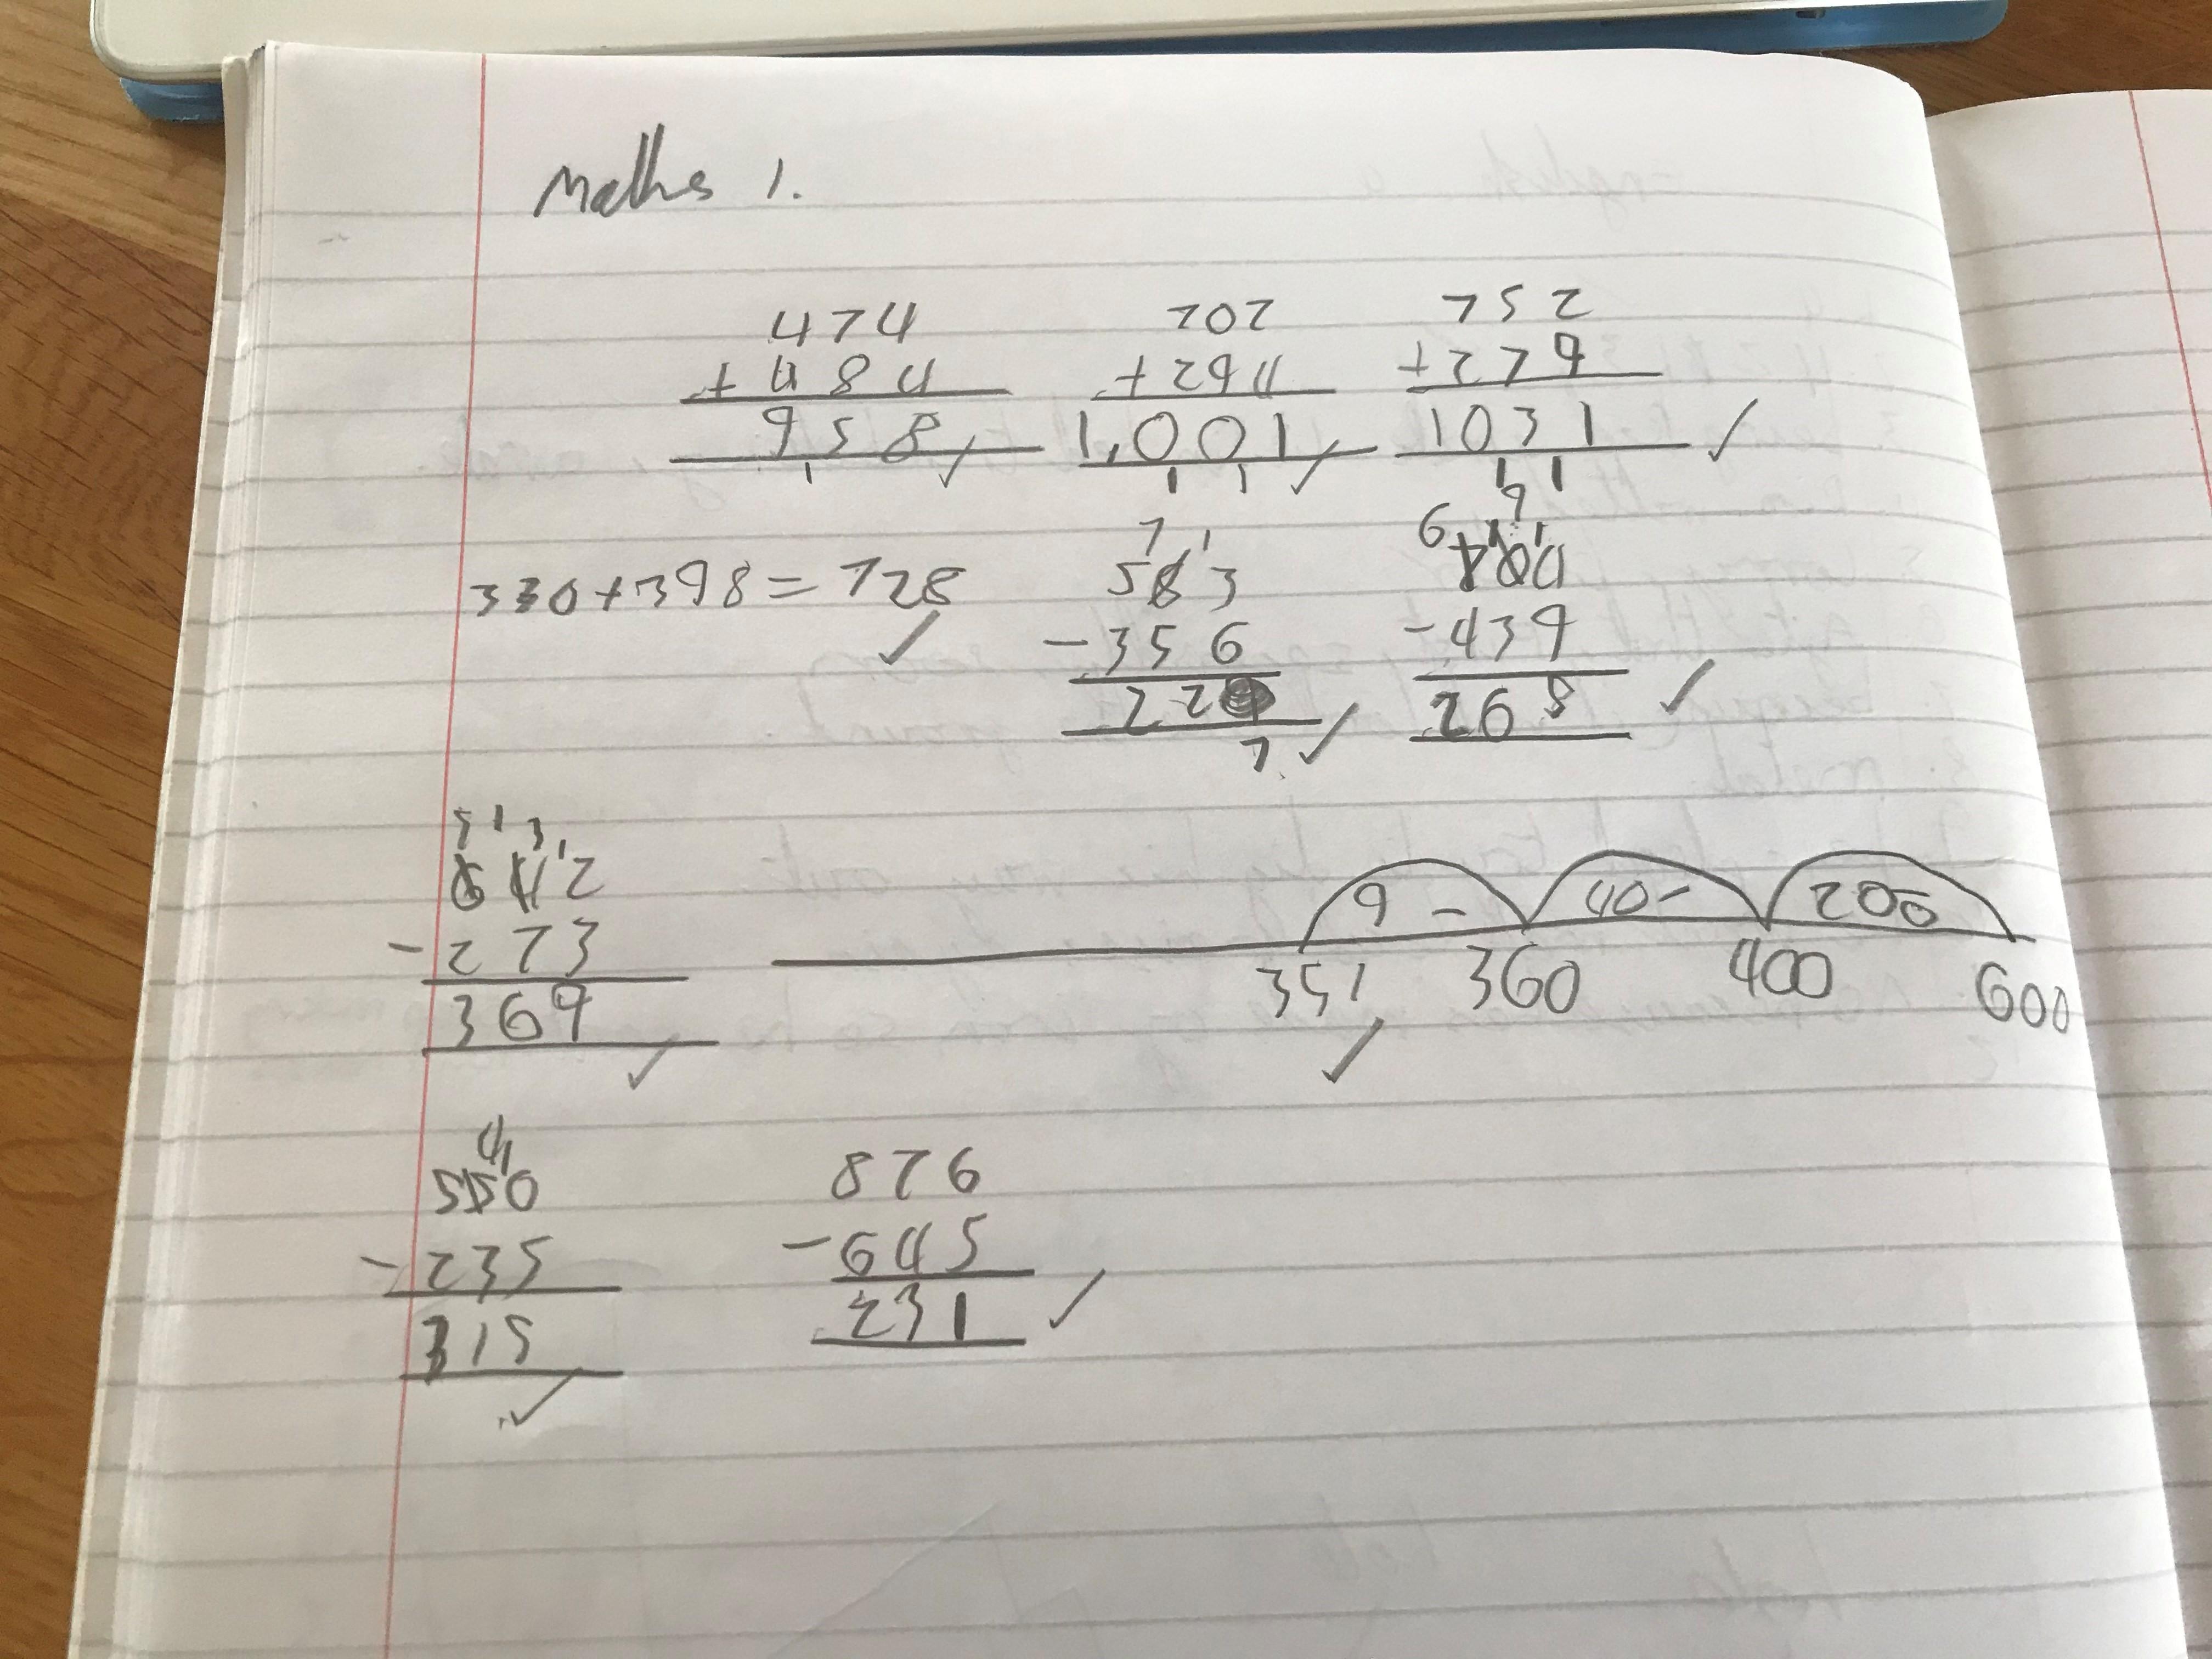 Maths 1.
474
+ 484
958
1
707
+ 294
1,001
1 1
752
+ 279
1031
1 1
330 + 398 = 728
7 1
583
- 356
227
6 9 1
- 439
268
5 1 3 1
642
- 273
369
9 - 40 - 200
351 360 400 600
4 1
550
- 235
315
876
- 645
231